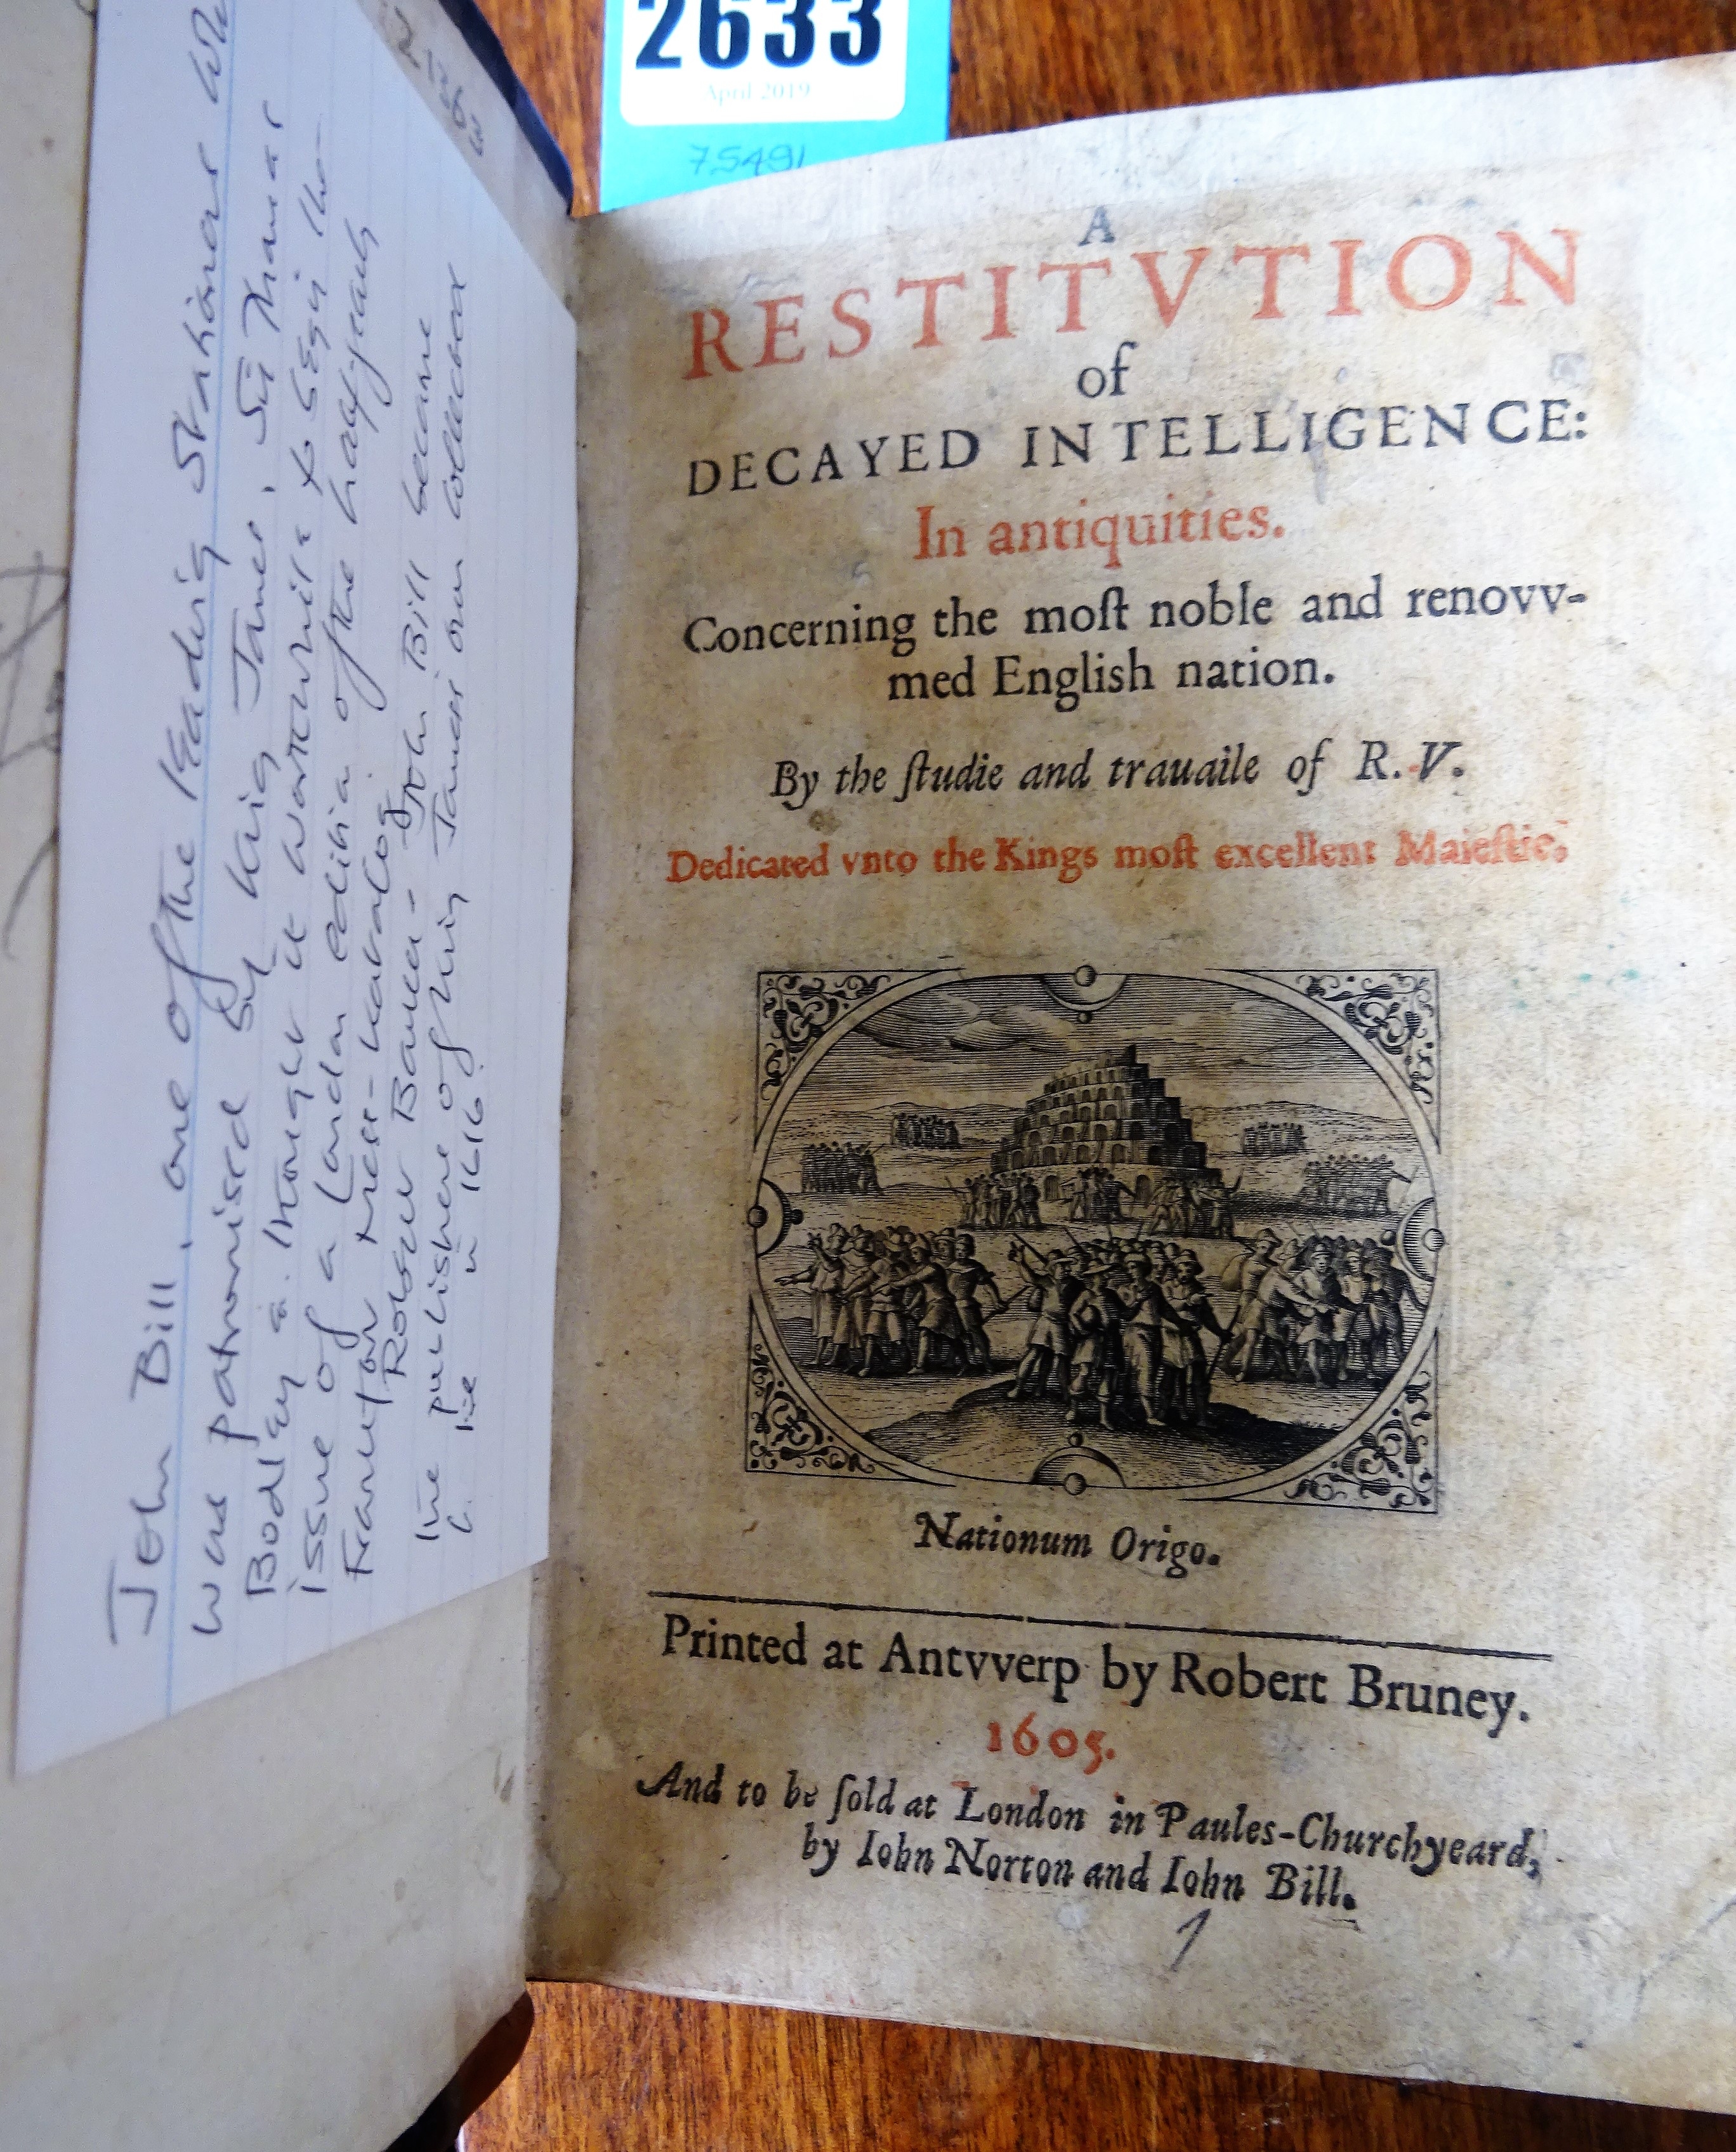 2633
April 2019
75491
A
RESTITVTION
of
DECAYED INTELLIGENCE:
In antiquities.
Concerning the moſt noble and renovv-
med English nation.
By the ſtudie and trauaile of R. V.
Dedicated vnto the Kings moſt excellent Maieſtie.
Nationum Origo.
Printed at Antvverp by Robert Bruney.
1605.
And to be ſold at London in Paules-Churchyeard,
by Iohn Norton and Iohn Bill.
1
John Bill, one of the leading Stationers who
was patronised by King James, Sir Thomas
Bodley a. thought it worthwhile to begin the
issue of a London edition of the half yearly
Frankfort Mess-Katalog
Robert Barker - John Bill became
the publishers of King James own collected
in 1616.